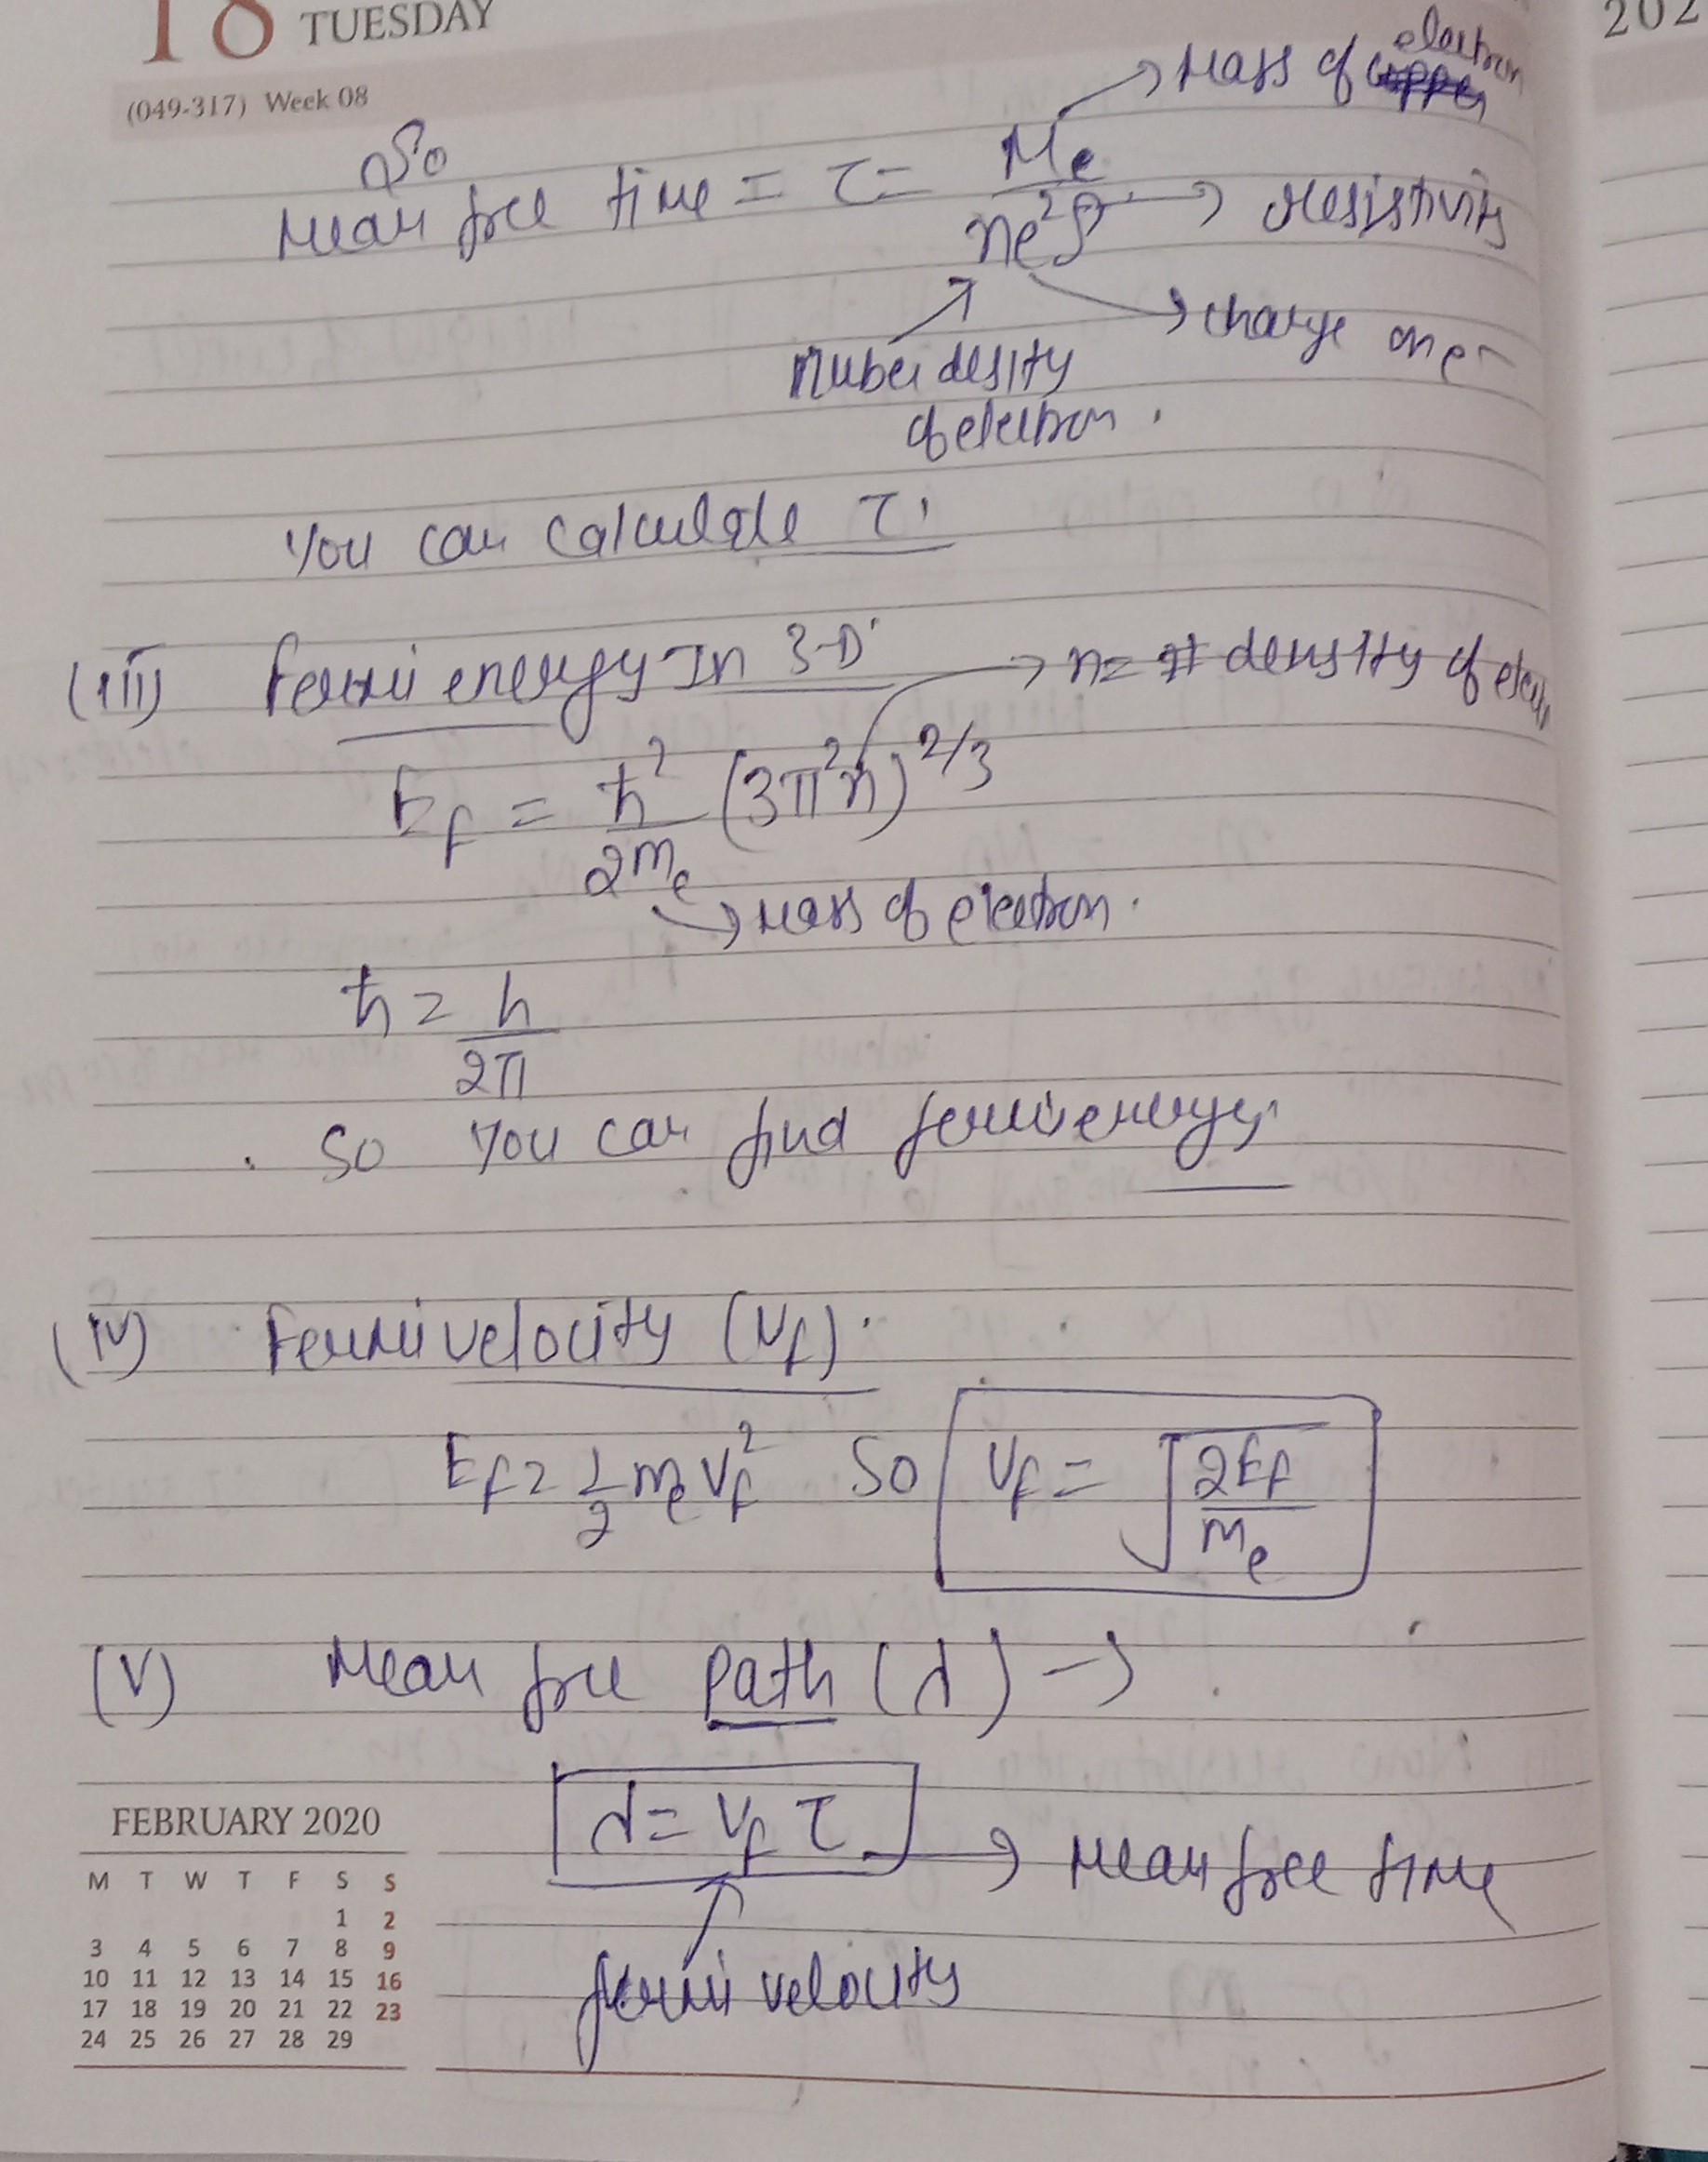 18 TUESDAY
202
(049-317) Week 08
→ Mass of electron
So
Mean free time = τ = Me / ne²ρ → resistivity
→ charge on e⁻
Nuber desity
of electron.
You can calculate τ.
(iii) Fermi energy In 3-D
→ n = # density of elect
E_f = ħ²/2m_e (3π²n)^2/3
→ Mass of electron.
ħ = h/2π
. So You can find fermi energy.
(iv) Fermi velocity (V_f).
E_f = 1/2 m_e V_f² So V_f = √(2E_f/m_e)
(V) Mean free path (λ) →
λ = V_f τ → Mean free time
fermi velocity
FEBRUARY 2020
M T W T F S S
1 2
3 4 5 6 7 8 9
10 11 12 13 14 15 16
17 18 19 20 21 22 23
24 25 26 27 28 29